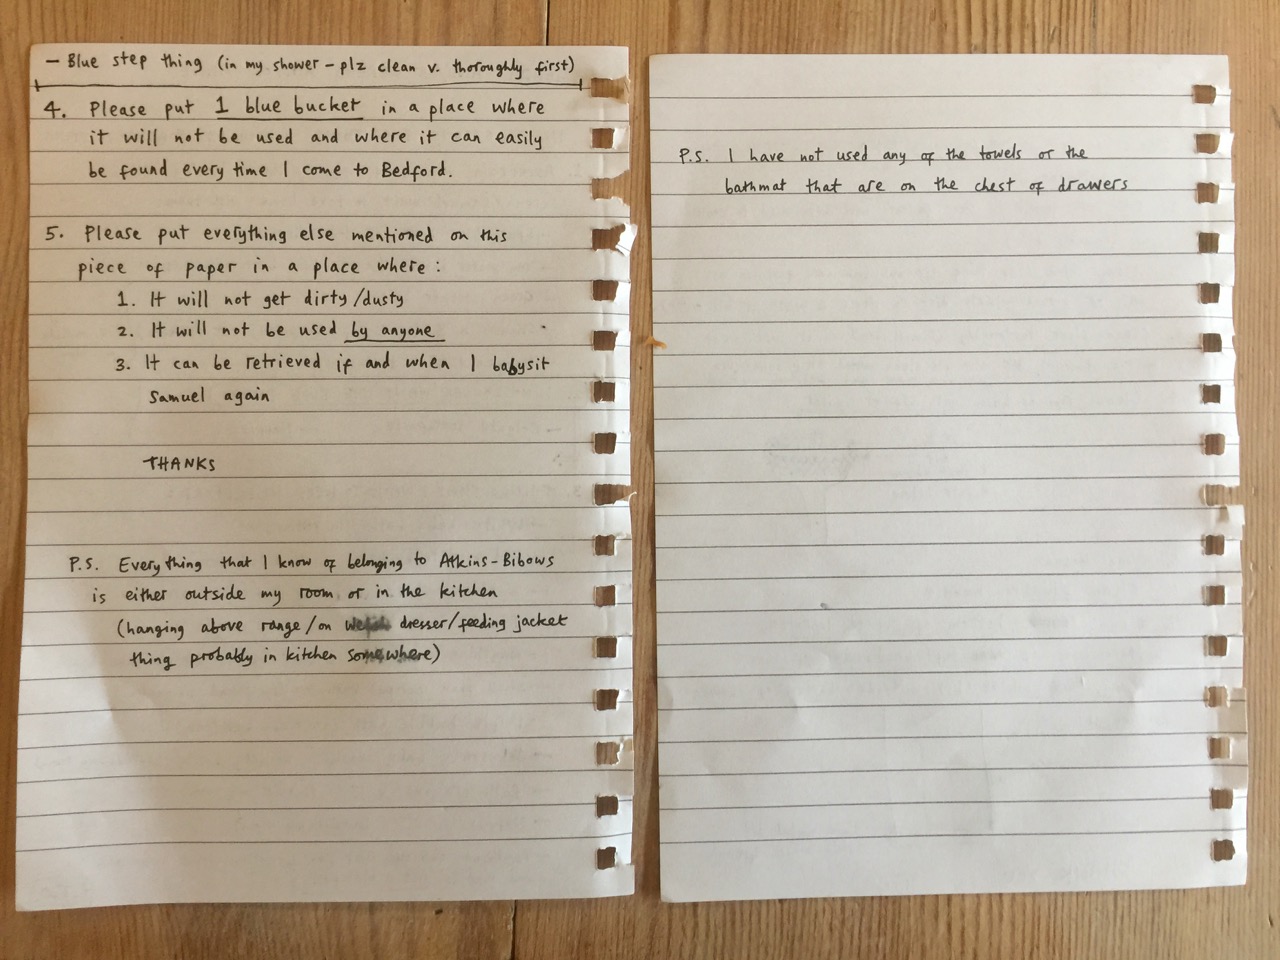 - Blue step thing (in my shower - plz clean v. thoroughly first)
4. Please put 1 blue bucket in a place where
it will not be used and where it can easily
be found every time I come to Bedford.
5. Please put everything else mentioned on this
piece of paper in a place where:
1. It will not get dirty/dusty
2. It will not be used by anyone
3. It can be retrieved if and when I babysit
Samuel again
THANKS
P.S. Everything that I know of belonging to Atkins-Bibows
is either outside my room or in the kitchen
(hanging above range/on Welsh dresser/feeding jacket
thing probably in kitchen somewhere)
P.S. I have not used any of the towels or the
bathmat that are on the chest of drawers